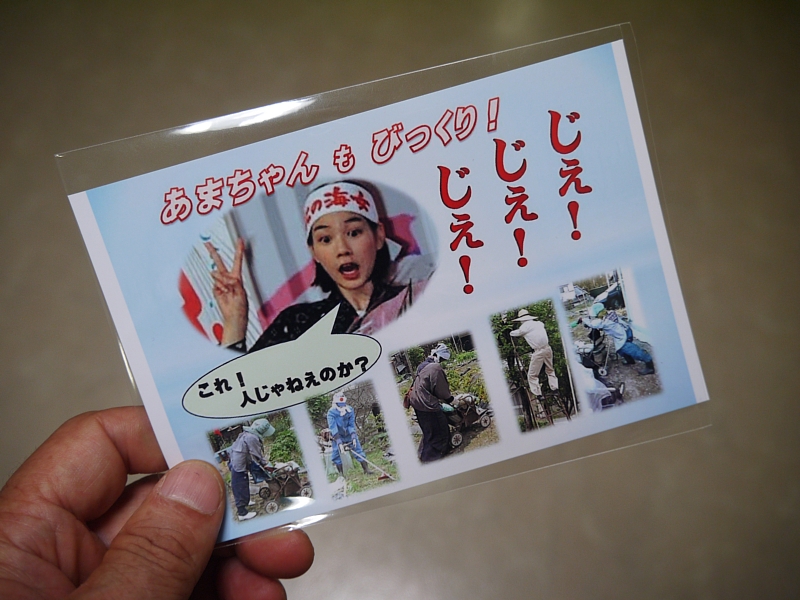 あまちゃん も びっくり!
じぇ!
じぇ!
じぇ!
の海女
これ!
人じゃねえのか?